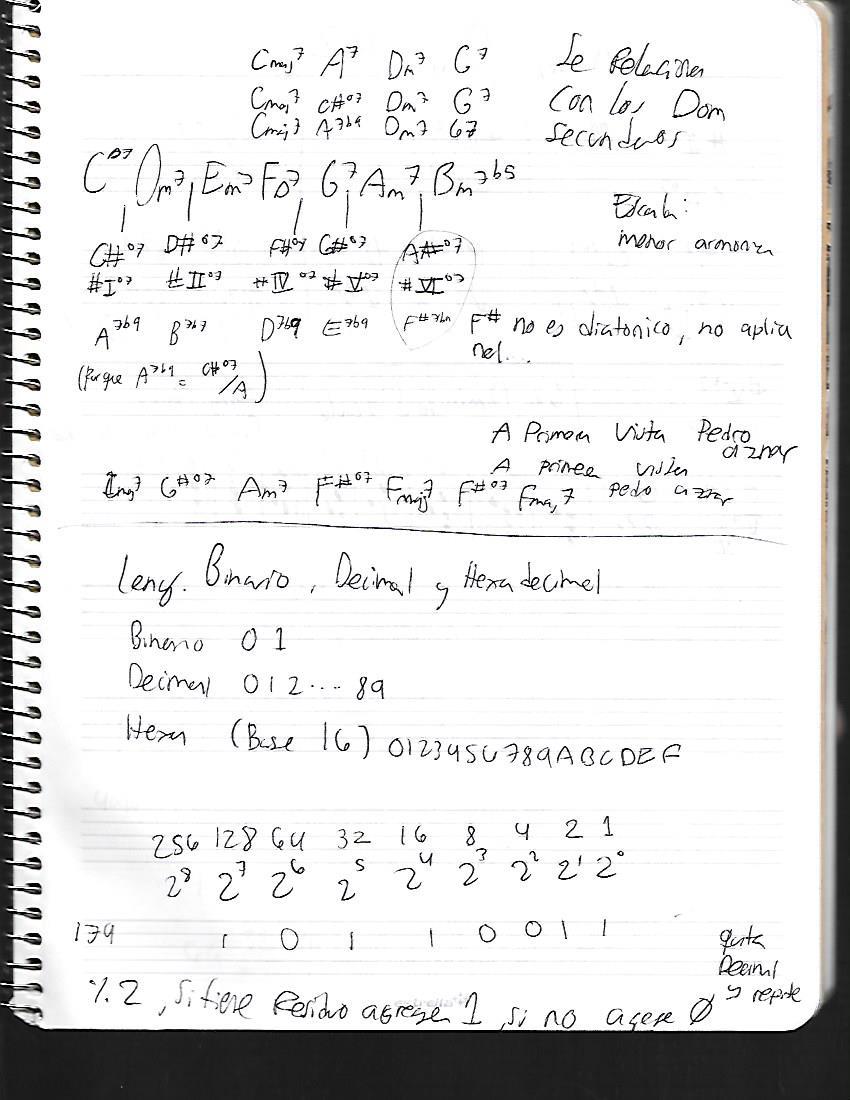 Cmaj7 A7 Dm7 G7 Se Relacionan
Cmaj7 C#°7 Dm7 G7 Con los Dom
Cmaj7 A7b9 Dm7 G7 secundarios
C Dm7 Em7 F G7 Am7 Bm7b5
Escala:
menor armonica
C#°7 D#°7 F#°7 G#°7 A#°7
#I°7 #II°7 #IV°7 #V°7 #VI°7
A7b9 B7b9 D7b9 E7b9 F#7b9 F# no es diatonico, no aplica
nel...
(Porque A7b9 = C#°7/A)
A Primera Vista Pedro
aznar
A primera vista
Imaj7 G#°7 Am7 F#°7 Fmaj7 F#°7 Fmaj7 pedro aznar
Leng. Binario, Decimal y Hexadecimal
Binario 0 1
Decimal 0 1 2 ... 8 9
Hexa (Base 16) 0 1 2 3 4 5 6 7 8 9 A B C D E F
256 128 64 32 16 8 4 2 1
2⁸ 2⁷ 2⁶ 2⁵ 2⁴ 2³ 2² 2¹ 2⁰
179 1 0 1 1 0 0 1 1
quita
Decimal
y repite
%2, Si tiene Residuo agregar 1, si no agregar 0